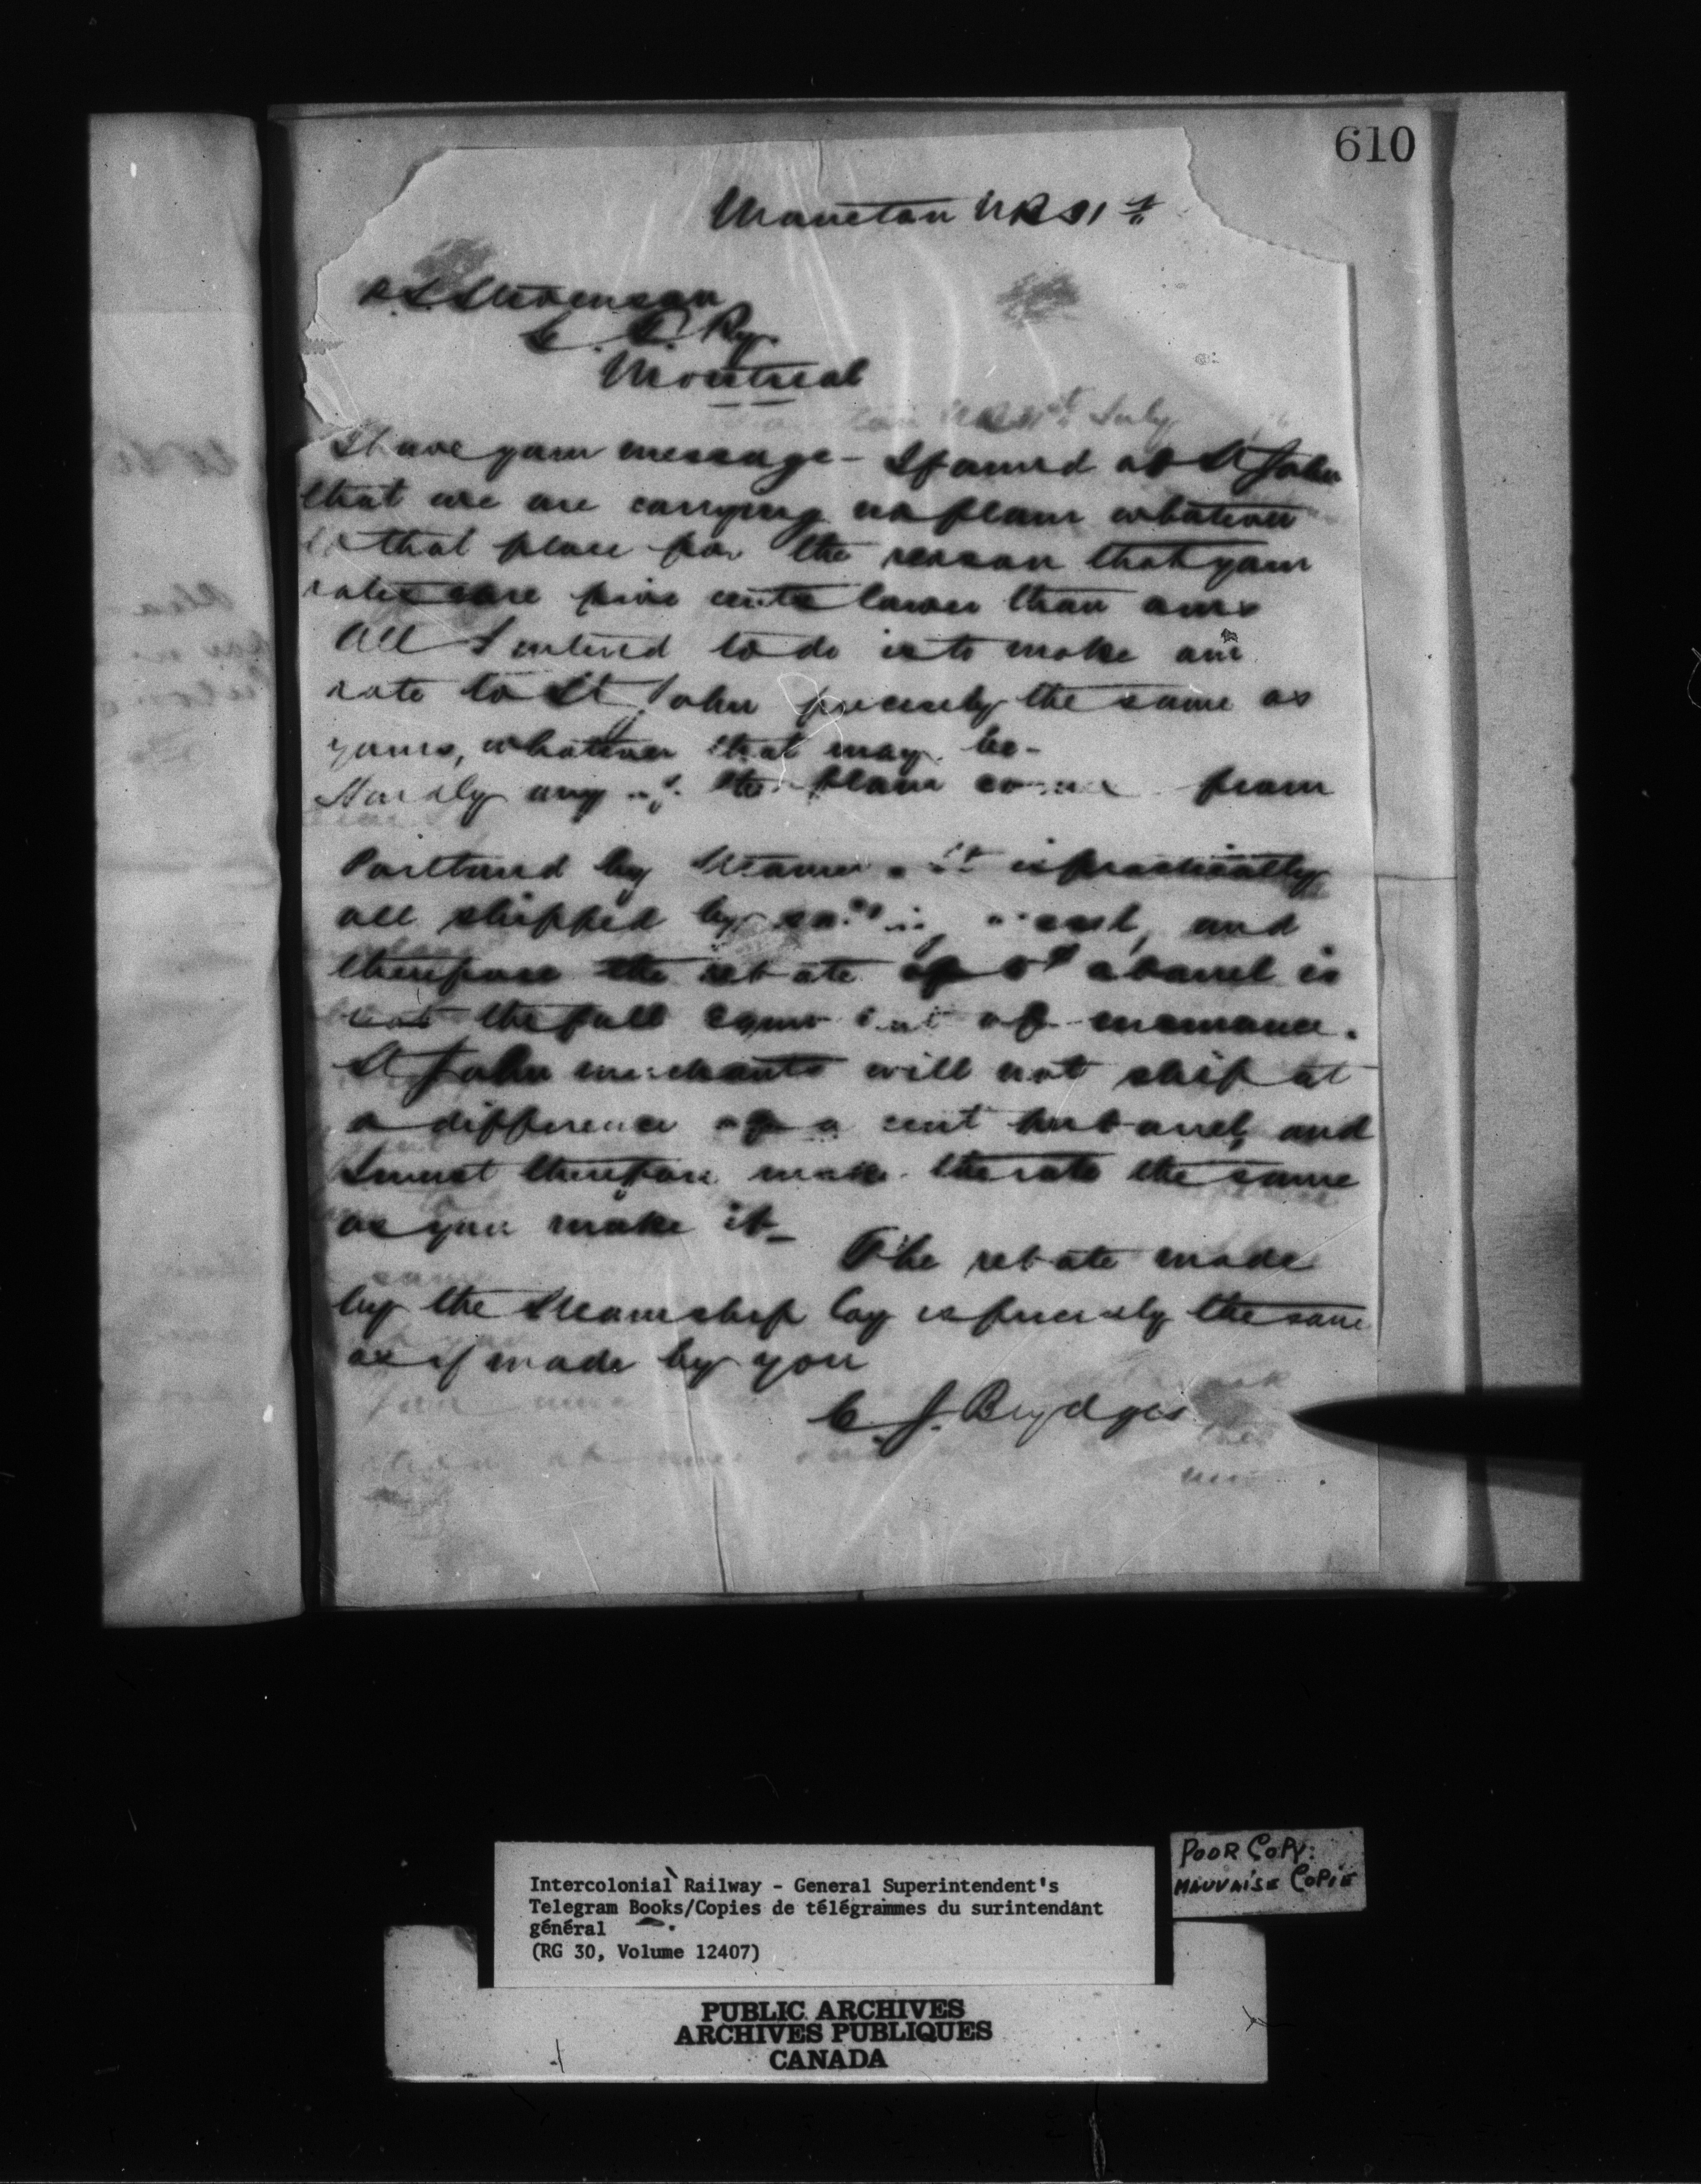 610
Moncton NB 31st
Stevenson
Ry
Montreal
I have your message - I found at St John
that we are carrying no flour whatever
to that place for the reason that your
rates are five cents lower than ours
All I intend to do is to make our
rate to St John precisely the same as
yours, whatever that may be -
Hardly any of the flour comes from
Portland by Steamer. it is practically
all shipped by sailing vessel, and
therefore the rebate of a barrel is
not the full equivalent of insurance.
St John merchants will not ship at
a difference of a cent per barrel, and
I must therefore make the rate the same
as you make it -
The rebate made
by the Steamship Coy is precisely the same
as if made by you
C. J. Brydges
Intercolonial Railway - General Superintendent's
Telegram Books/Copies de télégrammes du surintendant
général
(RG 30, Volume 12407)
POOR COPY.
MAUVAISE COPIE
PUBLIC ARCHIVES
ARCHIVES PUBLIQUES
CANADA